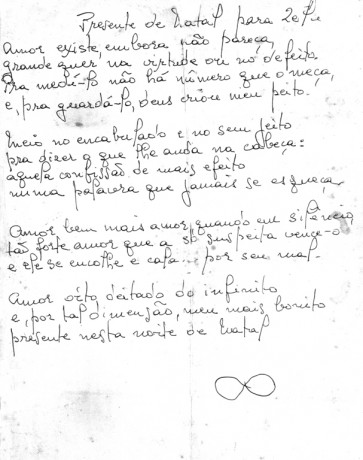 Presente de Natal para Zefi
Amor existe, embora não pareça,
grande quer na virtude ou no defeito.
Pra medi-lo não há número que o meça,
e, pra guardá-lo, deus criou meu peito.
Meio no encabulado e no sem jeito
pra dizer o que lhe anda na cabeça:
aquela confissão de mais efeito
numa palavra que jamais se esqueça.
Amor, bem mais amor, quando em silêncio
tão forte amor que a só suspeita vence-o
e ele se encolhe e cala... por seu mal.
Amor oito deitado do infinito
e, por tal dimensão, meu mais bonito
presente nesta noite de Natal
∞